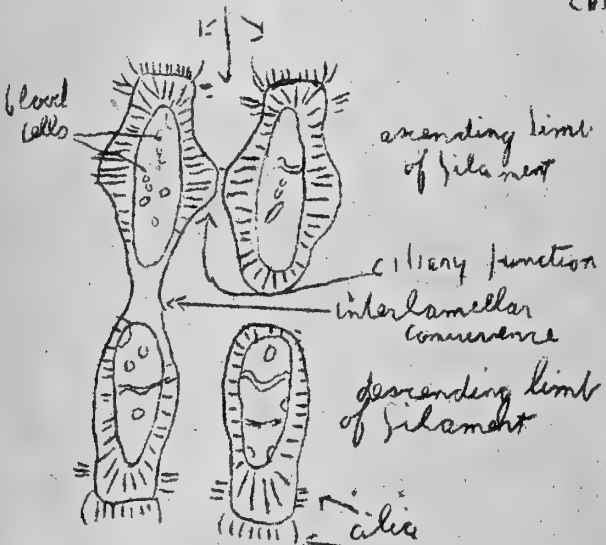 blood
cells
ascending limb
of filament
ciliary junction
interlamellar
descending limb
of filament
cilia